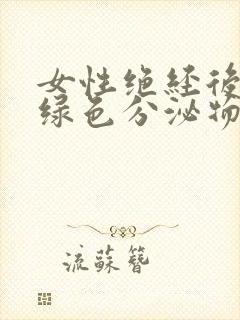 女性绝经後
绿色分泌物
流蘇簪